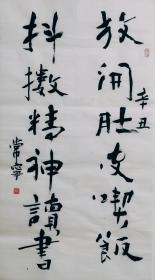 放開肚皮喫飯
抖擻精神讀書
辛丑
常寧